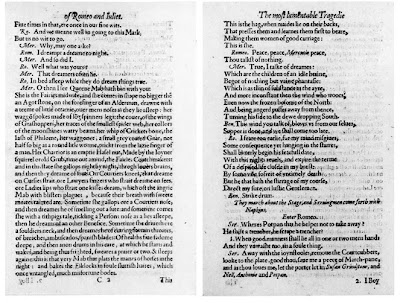 of Romeo and Iuliet.
Fiue times in that, ere once in our fine wits.
Ro. And we meane well in going to this Mask,
But tis no wit to go.
Mer. Why, may one aske?
Rom. I dreampt a dreame to night.
Mer. And so did I.
Ro. Well what was yours?
Mer. That dreamers often lie.
Ro. In bed asleep while they do dream things true.
Mer. O then I see Queene Mab hath bin with you:
She is the Fairies midwife, and she comes in shape no bigger thē
an Agot stone, on the forefinger of an Alderman, drawne with
a teeme of little
made of
of Grashoppers, her traces of the smallest spider web, her collors
of the moonshines watry beams, her whip of Crickets bone, the
lash of
half so big as a round litle worme,
of a man. Her Charriot is an emptie Hasel nut, Made by the Ioyner
squirrel or old Grub,
and in this state she gallops night by night, through
and then they dreame of loue.
on Cursies strait, ore Lawyers fingers who strait dreame on fees,
ore Ladies lips who strait on kisses dream, which oft the angrie
Mab with blisters plagues, because their breath
tainted are. Sometime she gallops ore a Courtiers nose,
and then dreames he of smelling out a sute: and somtime comes
she with a tithpigs tale, tickling a Persons nose as a lies asleep,
then he dreams of an other Benefice. Sometime she driueth ore
a souldiers neck, and then dreames he of cutting forrain throates,
of breaches, ambuscados, spanish blades: Of healths fiue fadome
deepe, and then anon drums in his eare, at which he starts and
wakes, and being thus frighted, sweares a praier or two & sleeps
again: this is that very Mab that plats the manes of horses in the
night: and bakes the Elklocks in foule sluttish haires, which
once vntangled, much misfortune bodes.
C 2
This
The most lamentable Tragedie
This is the hag, when maides lie on their backs,
That presses them and learnes them first to beare,
Making them women of good carriage:
This is she.
Romeo. Peace, peace, Mercutio peace,
Thou talkst of nothing.
Mer. True, I talke of dreames:
Which are the children of an idle braine,
Begot of nothing but vaine phantasie:
Which is as thin of substance as the ayre,
And more inconstant then the wind who wooes,
Euen now the frozen bosome of the North:
And being angerd puffes away from thence,
Turning his side to the dewe dropping South.
Ben. This wind you talk of, blows vs from our selues,
Supper is done, and we shall come too late.
Ro. I feare too earlie, for my mind misgiues,
Some consequence yet hanging in the starres,
Shall bitterly begin his fearfull date,
With this nights reuels, and expire the terme
Of a despised life closde in my brest:
By some vile forfeit of vntimely death.
But he that hath the stirrage of my course,
Direct my
lustie Gentlemen.
Ben. Strike drum.
They march about the Stage, and Seruingmen come forth with
Napkins.
Enter Romeo.
Ser. Wheres Potpan that he helpes not to take away?
He shift a trencher, he scrape a trencher?
1. When good manners shall lie all in one or two mens hands
And they vnwasht too, tis a foule thing.
Ser. Away with the ioynstooles, remoue the Courtcubbert,
looke to the plate, good thou, saue me a peece of March-pane,
and as thou loues me, let the porter let in Susan Grindstone, and
Nell, Anthonie and Potpan.
2. I Boy